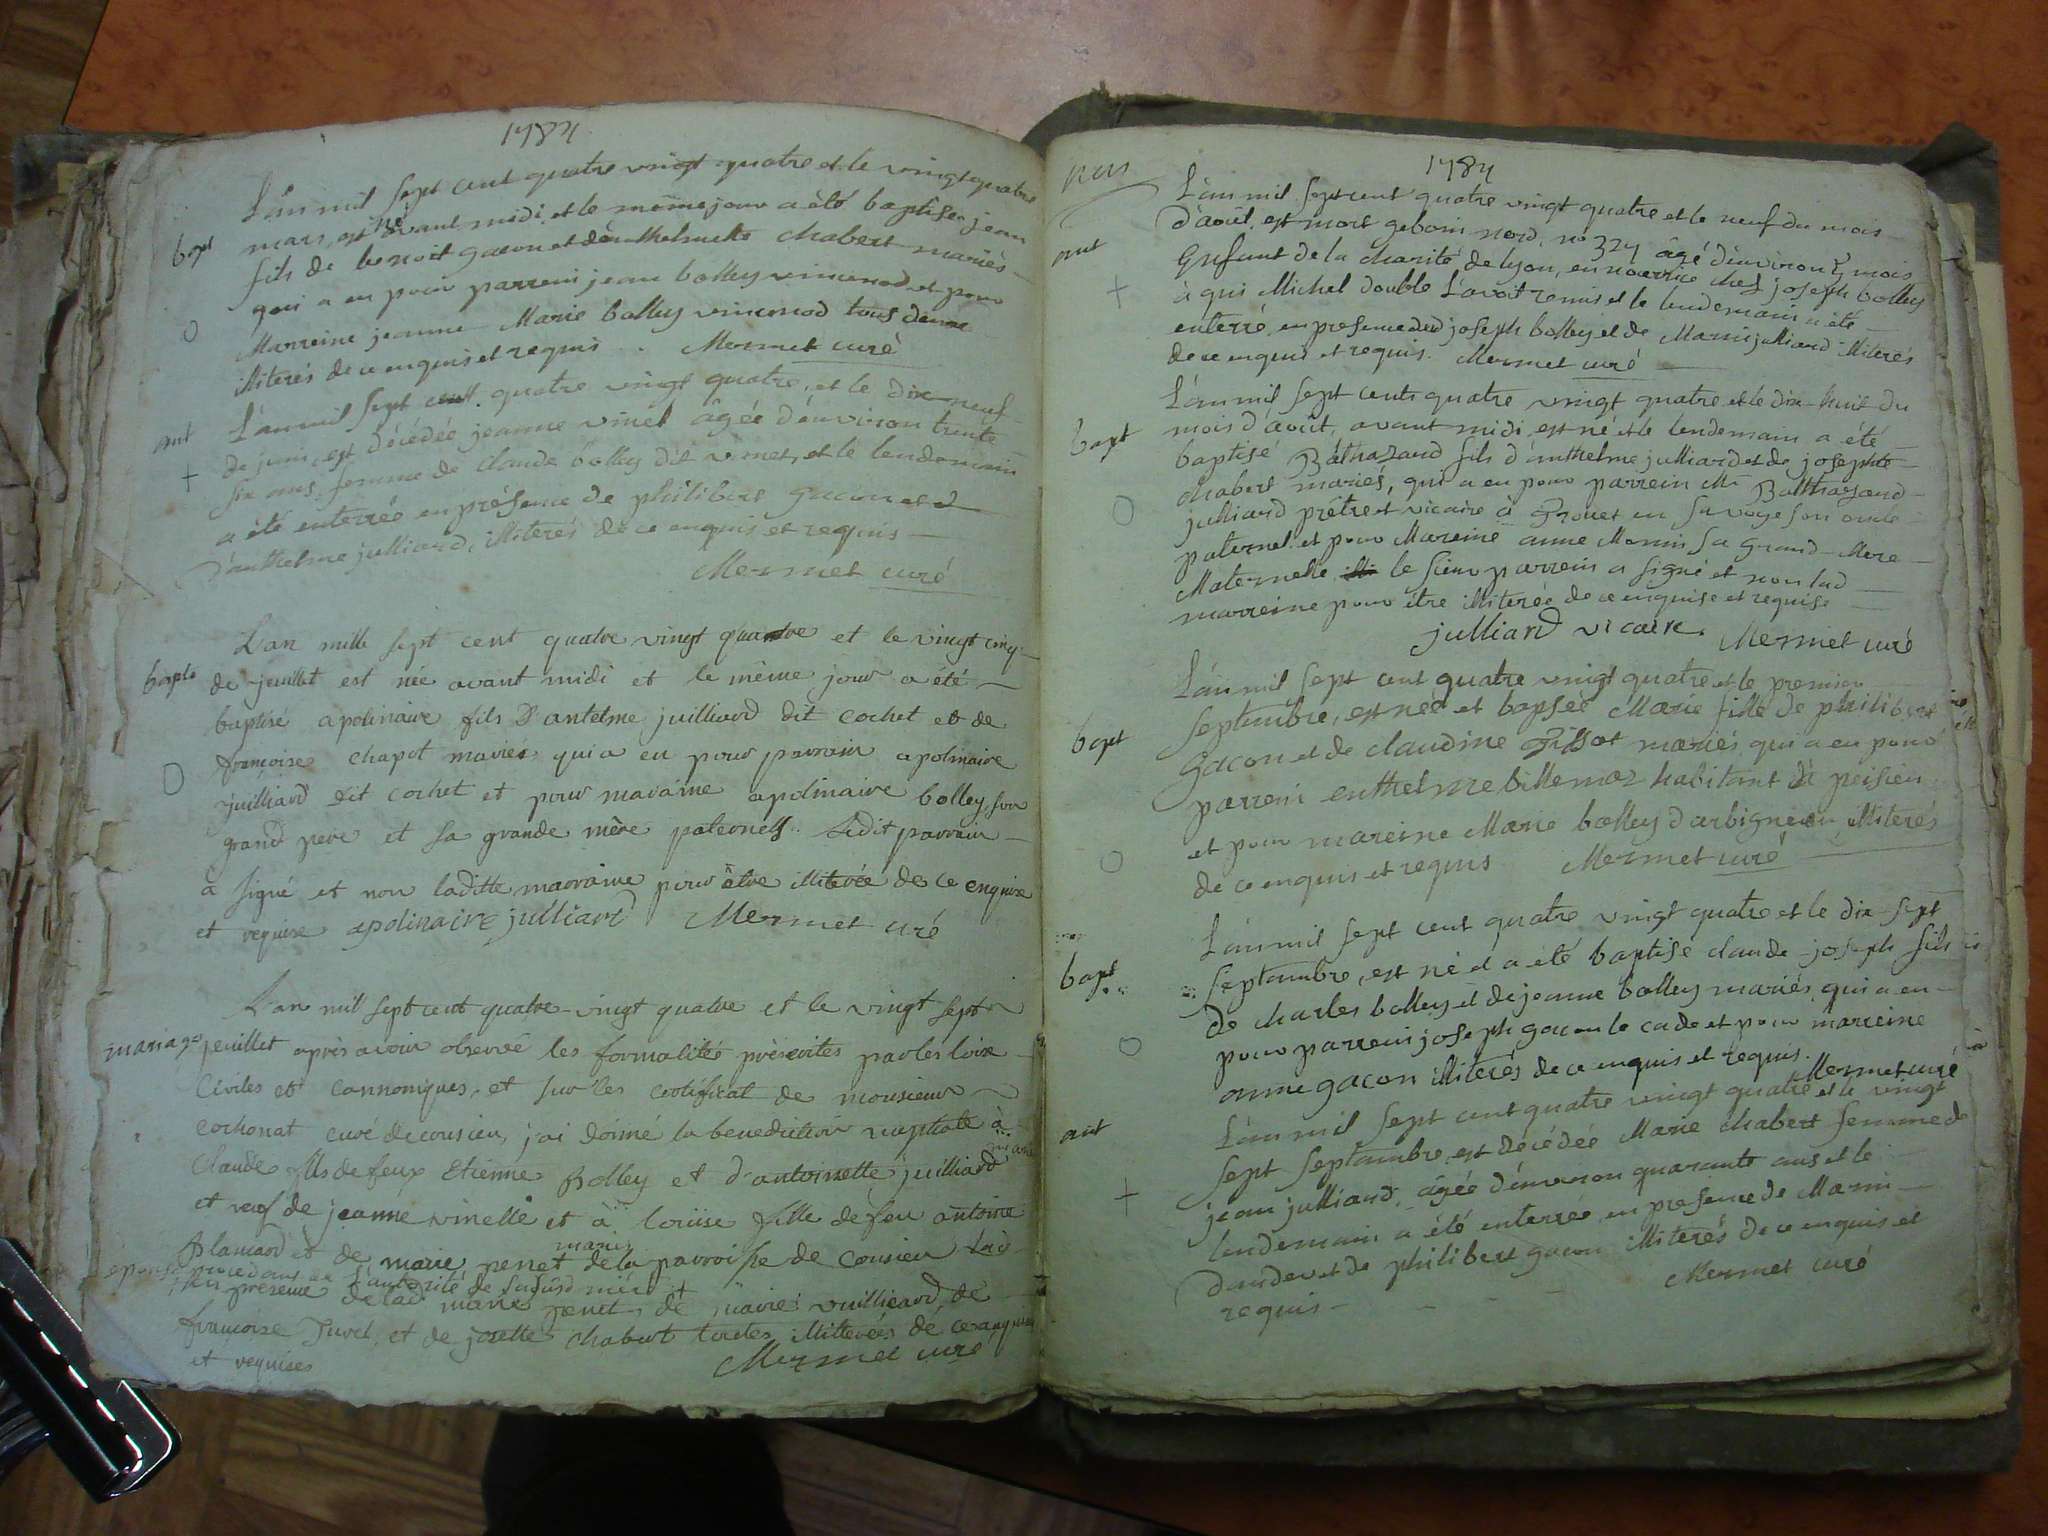 1784
L'an mil sept cent quatre vingt quatre et le vingt quatre
bapt
mars, est né avant midi, et le même jour a été baptisé jean
fils de benoit gacon et d'anthelmette chabert mariés
qui a eu pour parrein jean bolley vincenod et pour
Marreine jeanne Marie bolley vincenod tous deux
illiterés de ce enquis et requis. Mermet curé
L'an mil sept cent quatre vingt quatre, et le dix neuf
de juin, est décédée jeanne vinet âgée d'environ trente
six ans, femme de claude bolley dit vinet, et le lendemain
a été enterrée en présence de philibert gacon et
d'anthelme julliard, illiterés de ce enquis et requis
Mermet curé
L'an mille sept cent quatre vingt quatre et le vingt cinq
bapt
de juillet est née avant midi et le même jour a été
baptisé apolinaire fils d'antelme juilliard dit cochet et de
françoise chapot mariés qui a eu pour parrain apolinaire
juilliard dit cochet et pour maraine apolinaire bolley son
grand pere et sa grande mère paternels. Ledit parrain
a signé et non laditte marraine pour être illiterée de ce enquise
et requise apolinaire julliard Mermet curé
L'an mil sept cent quatre vingt quatre et le vingt sept
mariage
jeuillet après avoir observé les formalités préscrites par les loix
civiles et cannoniques, et sur les certificat de monsieur
cochonat curé de cousieu, j'ai donné la benediction nuptiale à
claude fils de feux Etienne Bolley et d'antoinette juilliard
et veuf de jeanne vinelle et à loüise fille de feu antoine
Plancard et de marie penet de la parroisse de cousieu
l'autorité de
en présence de lad marie penet, de marie vuillieard, de
françoise Juvel, et de josette chabert toutes illiterées de ce enquises
et requises Mermet curé
1784
L'an mil sept cent quatre vingt quatre et le neuf du mois
d'août, est mort geboin nord, n° 324 âgé d'environ mois
Enfant de la charité de lyon, en nourrice chez joseph bolley
à qui Michel double l'avoit remis et le lendemain a été
enterré, en presence dud joseph bolley et de Marin julliard illiterés
de ce enquis et requis. Mermet curé
L'an mil sept cents quatre vingt quatre et le dix-huit du
bapt
mois d'août, avant midi est né et le lendemain a été
baptisé Balthazard fils d'anthelme julliard et de josephte
chabert mariés, qui a eu pour parrein Mr Balthazard
julliard prêtre et vicaire à Grouet en savoye son oncle
paternel. et pour Mareine anne Momin sa Grand-Mere
Maternelle le sieur parrein a signé et non lad
marreine pour être illiterée de ce enquise et requise
julliard vicaire. Mermet curé
L'an mil sept cent quatre vingt quatre et le premier
bapt
septembre, est née et bapsée Marie fille de philibert
Gacon et de claudine Tissot mariés qui a eu pour
parrein enthelme billemaz habitant à peisieu
et pour mareine Marie bolley d'arbignieu illiterés
de ce enquis et requis Mermet curé
L'an mil sept cent quatre vingt quatre et le dix-sept
bapt
septembre, est né et a été baptisé claude-joseph fils
de charles bolley et de jeanne bolley mariés, qui a eu
pour parrein joseph gacon le cade et pour marreine
anne gacon illiterés de ce enquis et requis.
Mermet curé
L'an mil sept cent quatre vingt quatre et le vingt
sept septembre, est décédée Marie chabert femme de
jean julliard, âgée d'environ quarante ans et le
lendemain a été enterrée, en presence de Marin
dandev et de philibert gacon illiterés de ce enquis et
requis Mermet curé